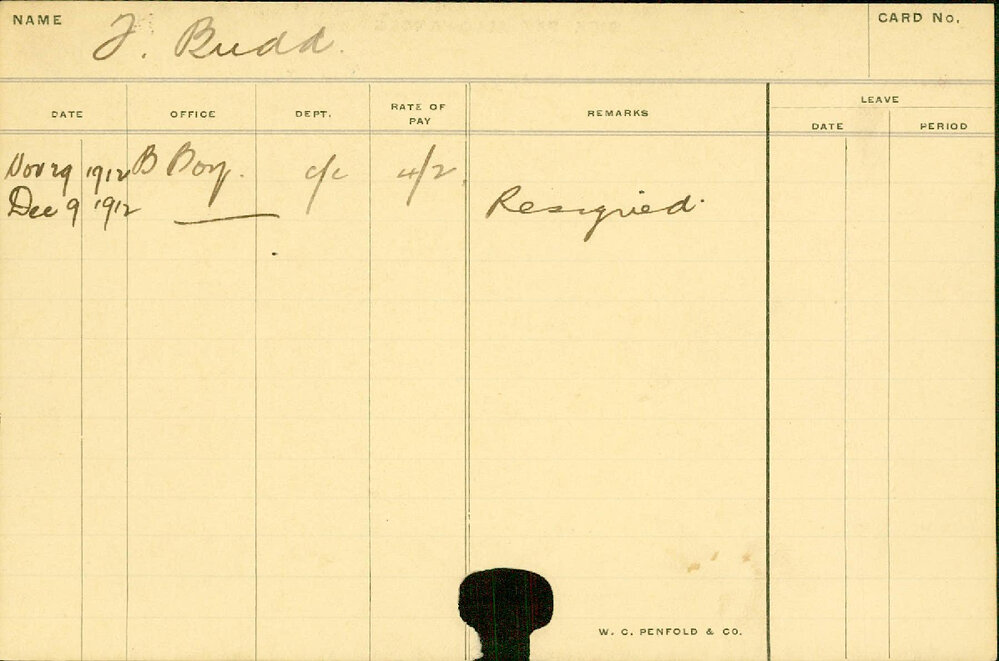 NAME J. Budd. CARD No.
DATE OFFICE DEPT. RATE OF PAY REMARKS LEAVE
DATE PERIOD
Nov 29 1912 B Boy. c/c 4/2
Dec 9 1912 Resigned.
W. C. PENFOLD & CO.